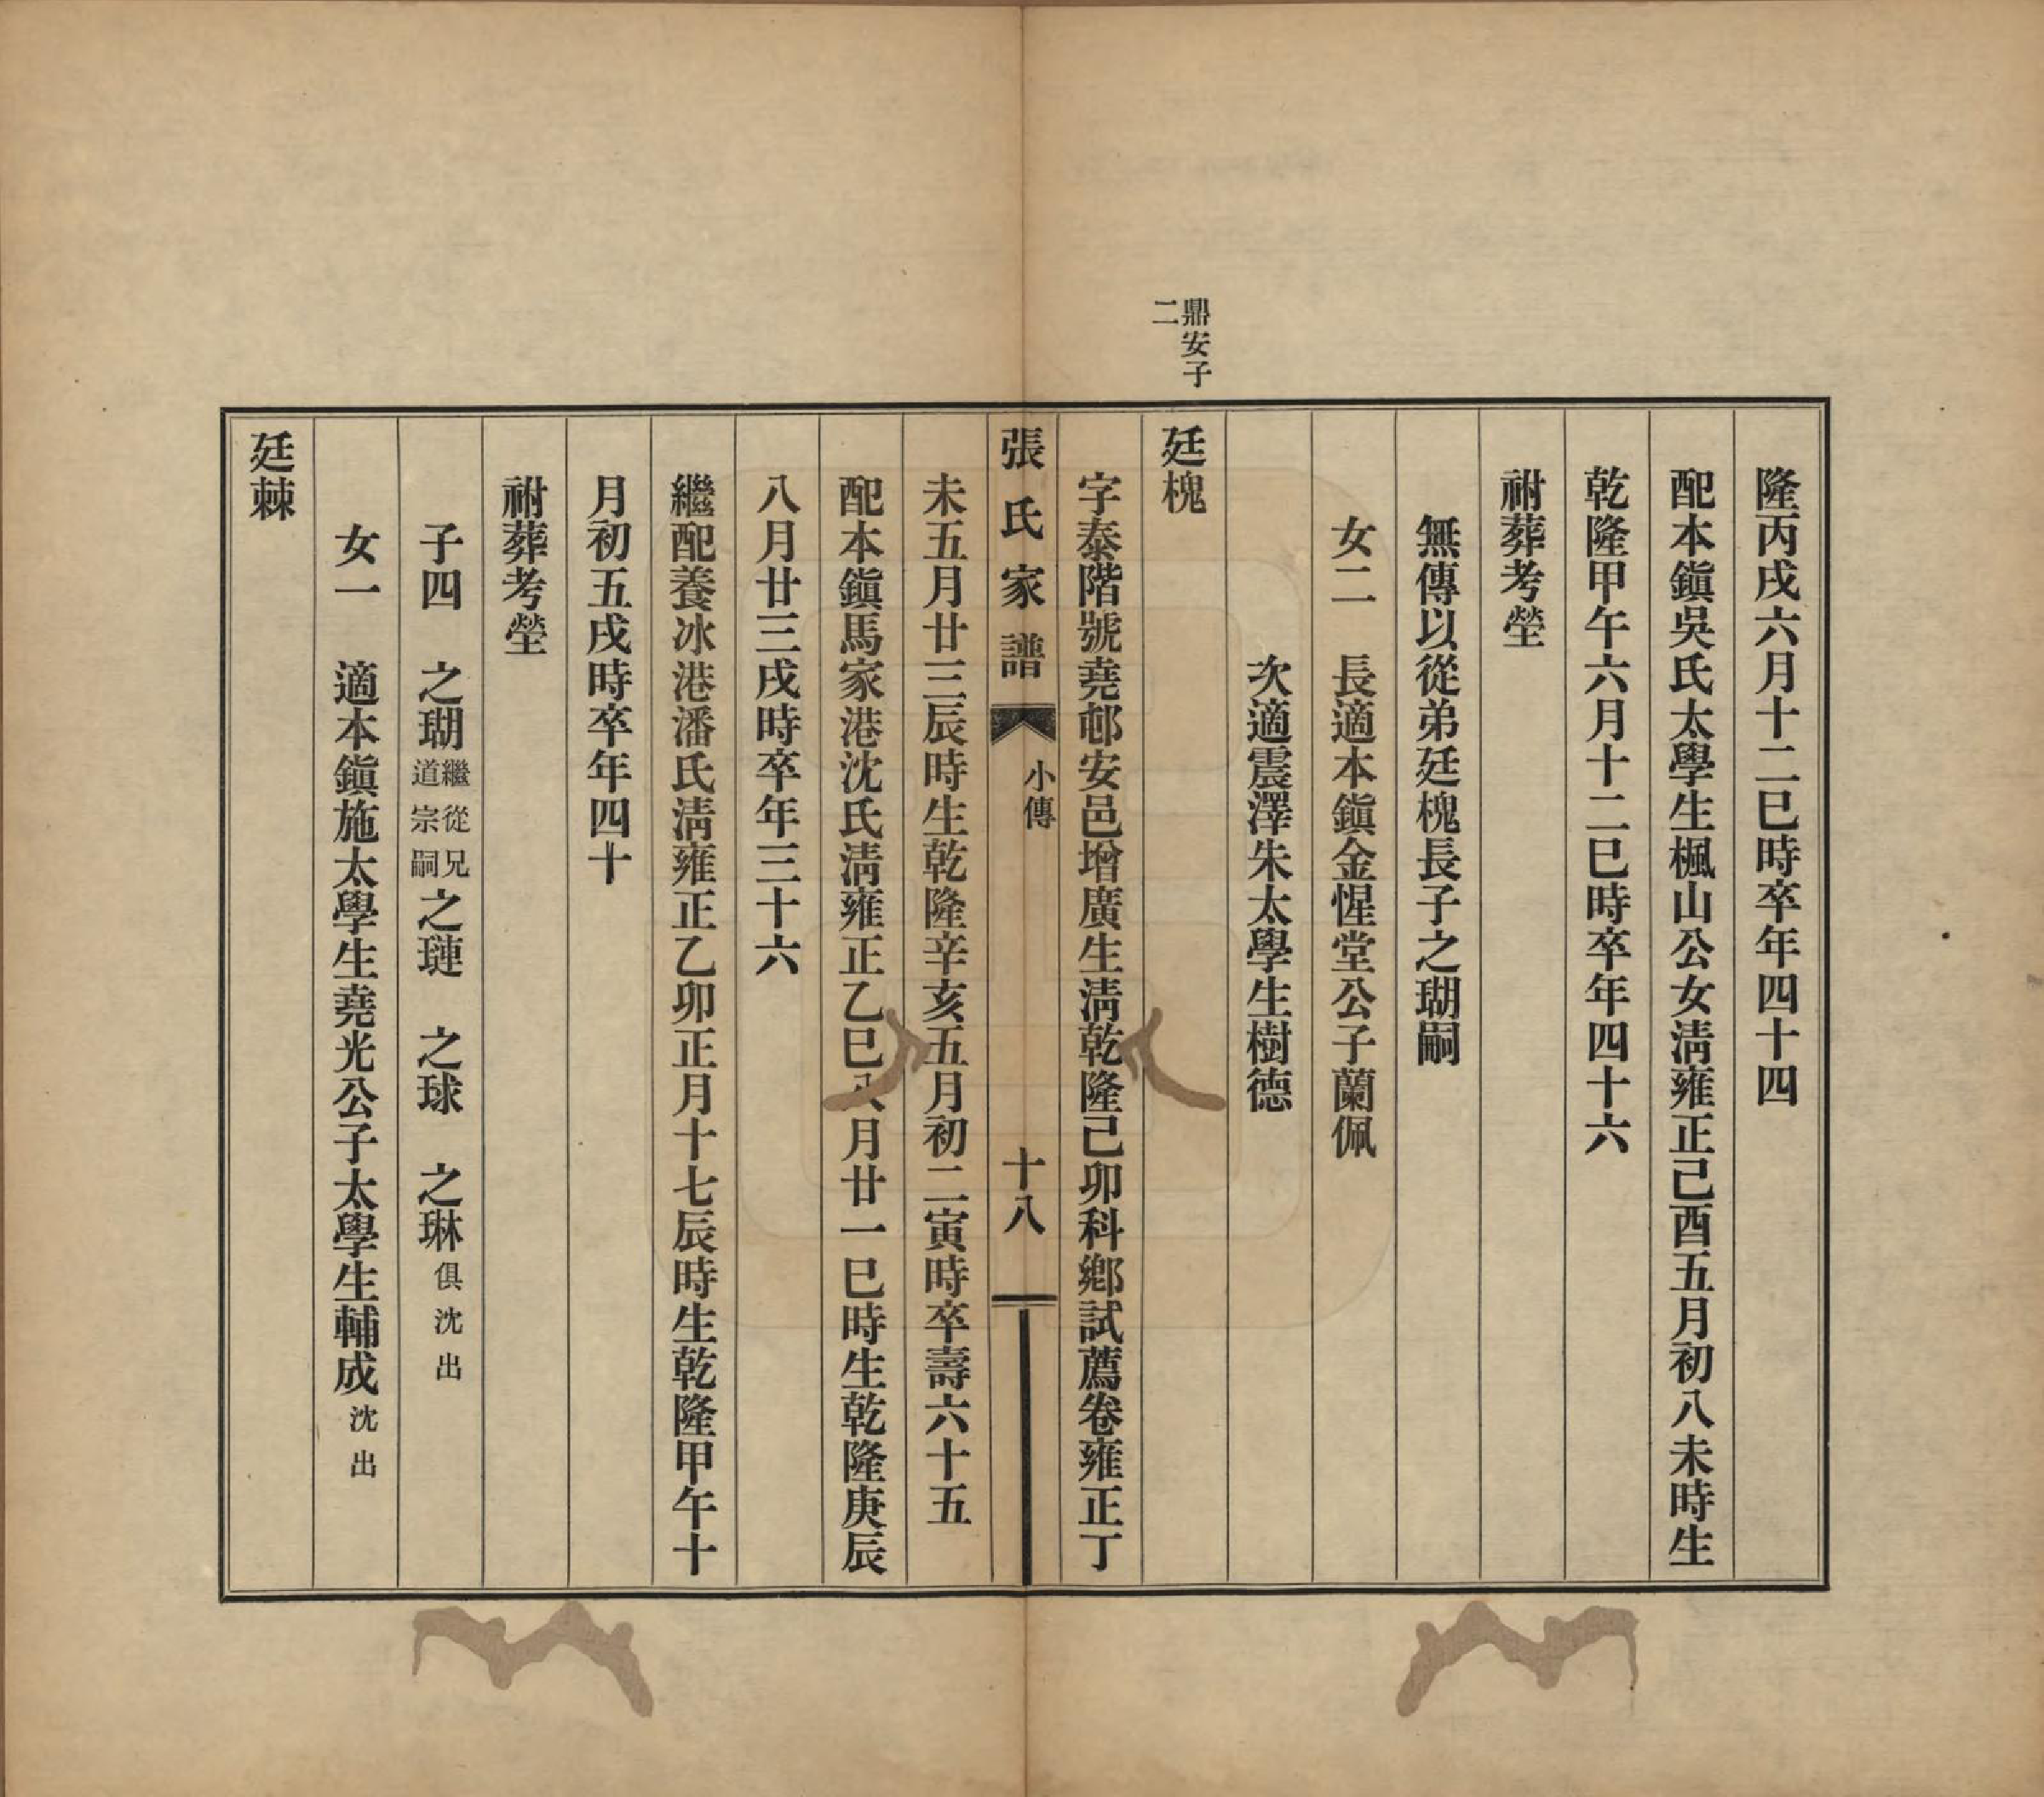 隆丙戌六月十二巳時卒年四十四
配本鎭吳氏太學生楓山公女淸雍正己酉五月初八未時生
乾隆甲午六月十二巳時卒年四十六
祔葬考塋
無傳以從弟廷槐長子之瑚嗣
女二　長適本鎭金惺堂公子蘭佩
次適震澤朱太學生樹德
鼎安子
二
廷槐
字泰階號堯邨安邑增廣生淸乾隆己卯科鄕試薦卷雍正丁
張氏家譜　小傳　十八
未五月廿三辰時生乾隆辛亥五月初二寅時卒壽六十五
配本鎭馬家港沈氏淸雍正乙巳八月廿一巳時生乾隆庚辰
八月廿三戌時卒年三十六
繼配養冰港潘氏淸雍正乙卯正月十七辰時生乾隆甲午十
月初五戌時卒年四十
祔葬考塋
子四　之瑚繼從兄道宗嗣之璉　之球　之琳俱沈出
女一　適本鎭施太學生堯光公子太學生輔成沈出
廷棘